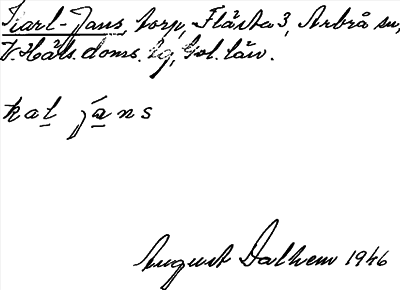 Karl-Jans, torp, Flästa 3, Arbrå sn,
V. Häls. doms. sg, Gvl. län.
kal jans
August Dalhem 1946